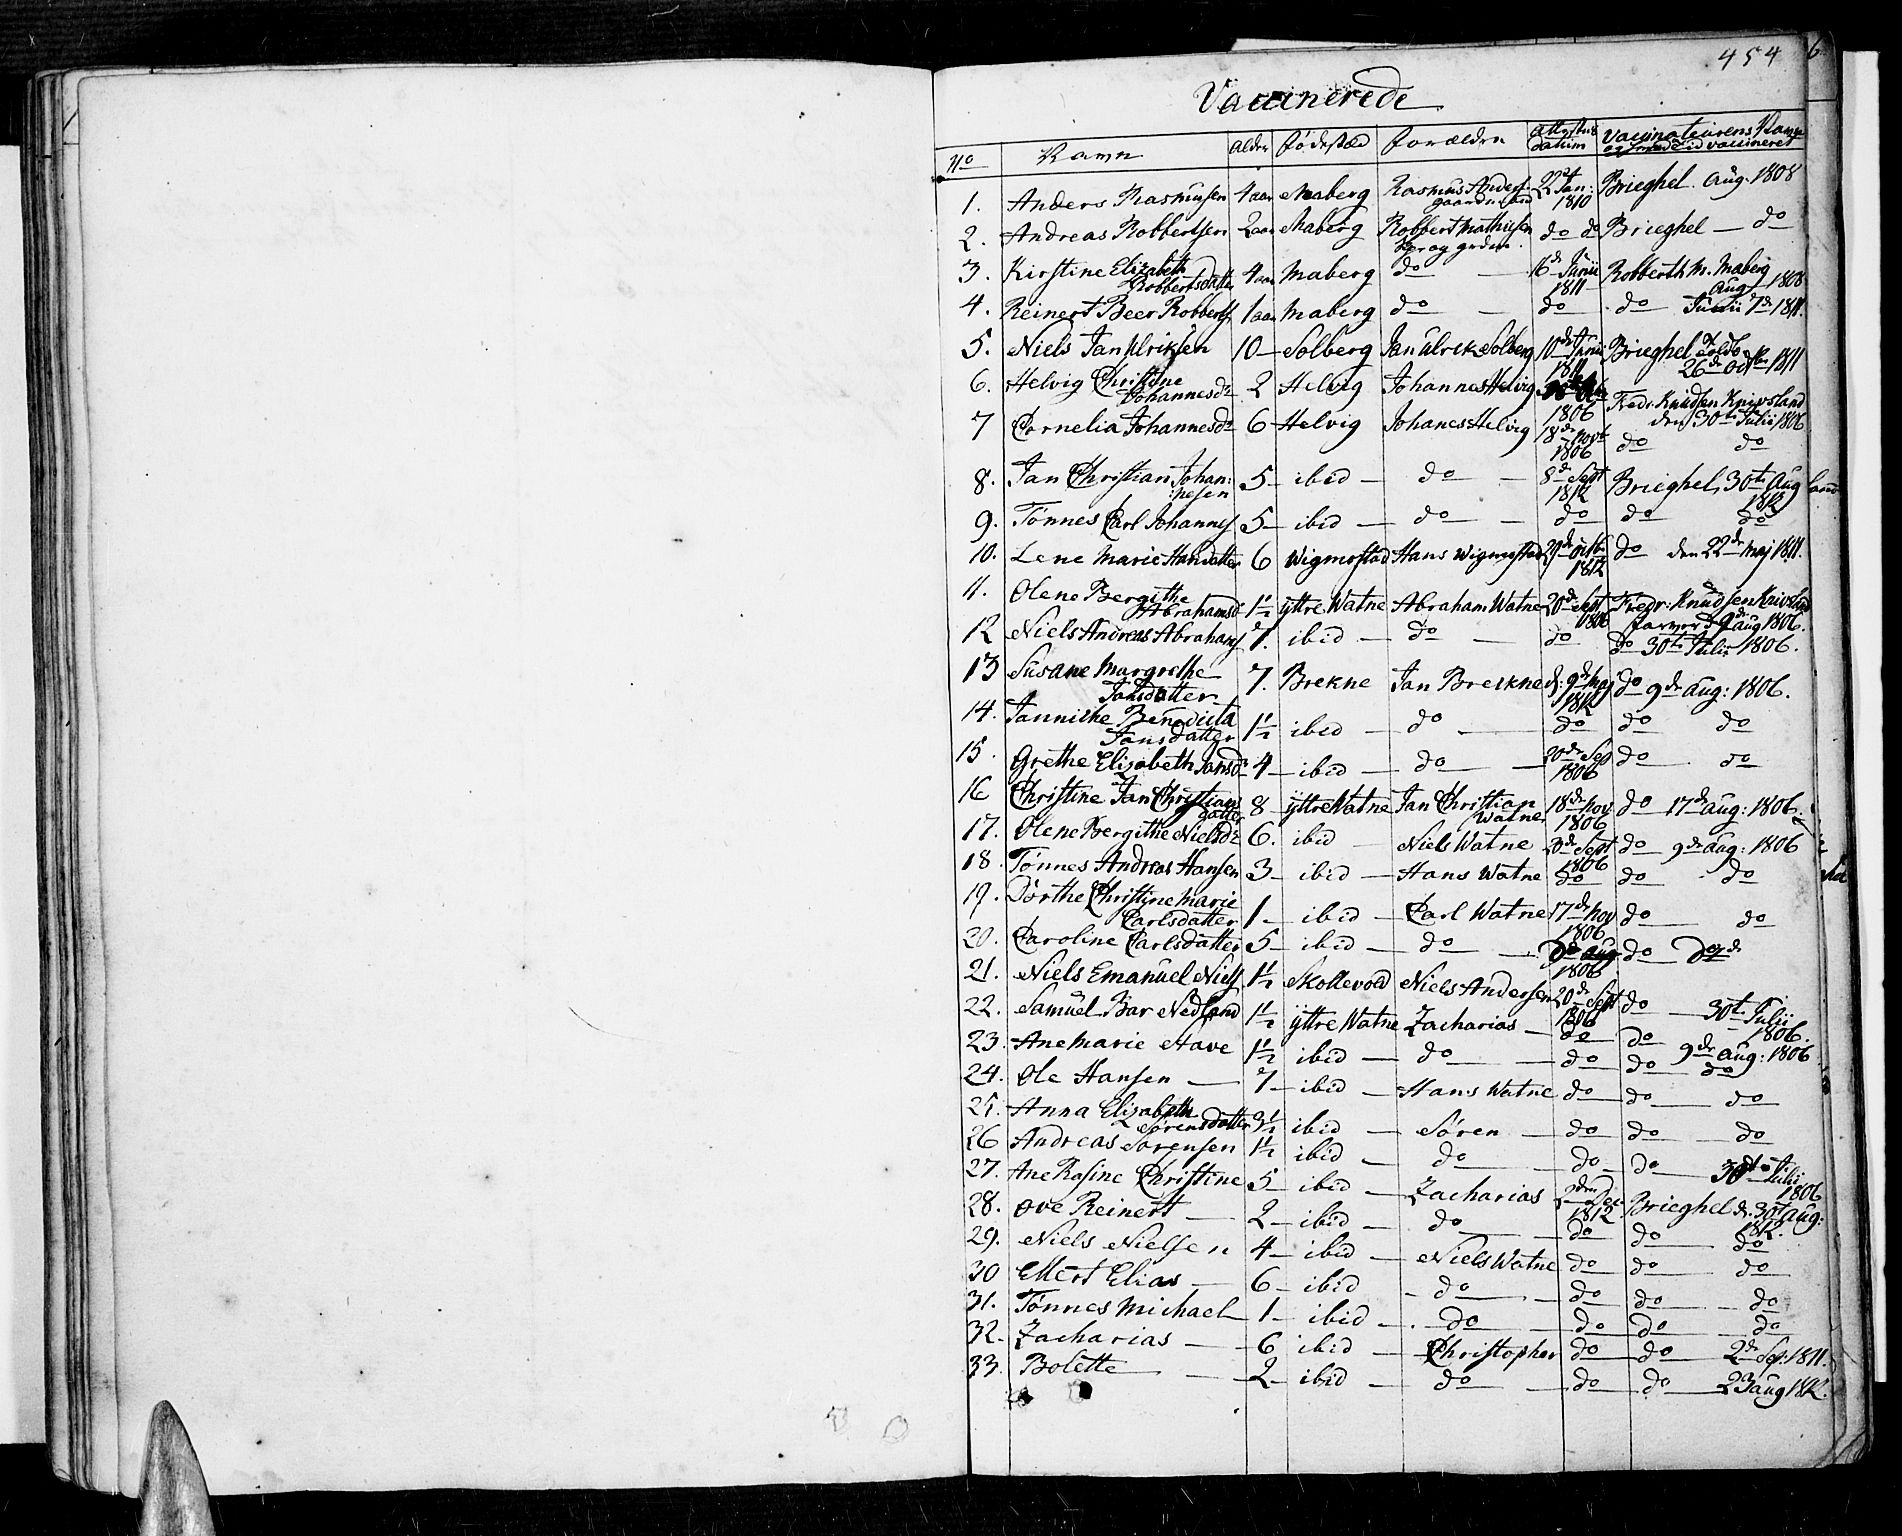 454
Vaccinerede
No Navn Alder Fødested Forældre Attestens datum Vaccinateurens Navn og vaccineret
1. Anders Rasmusen 4 aar Maberg Rasmus Anders- 22 Jan: 1810 Brieghel Aug. 1808
2. Andreas Robbertsen 2 aar Maberg Robbert Mathisen do do Brieghel — do
3. Kirstine Elizabeth Robbertsdatter 4 aar Maberg do — 16de Junii 1811 Robberth M. Maberg Aug 1808
4. Reinert Beer Robberts 1 aar Maberg do — do do Junii 7de 1811.
5. Niels Jan Ulriksen 10 — Solberg Jan Ulrik Solberg 10de Junii 1811 Brieghel 26de 1811
6. Helvig Christine Johannesdr 2 Helvig Johannes Helvig 1806 Fredr: Knudsen Knivsland den 30te Julii 1806
7 Cornelia Johannesdr 6 — Helvig Johanes Helvig 18de Novb 1806 do do
8. Jan Christian Johan:nesen 5 — ibid — do — 8de Sept 1812 Brieghel, 30te Aug 1812
9. Tønnes Carl Johannes 5 — ibid — do — do do do
10. Lene Marie Hansdatter 6 Wigmostad Hans Wigmostad 1812 do den 22de Maj 1811.
11. Olene Bergithe Abrahamsd 1½ ÿttre Watne Abraham Watne 20de Sept 1806 Fredr: Knudsen Knivsland 9de aug 1806.
12 Niels Andreas Abrahams 7. ibid — do — do do 30te Julii 1806.
13 Susane Margrethe Jansdatter 7. Brekne Jan Breckne d: 9de Maj 1812 do 9de aug: 1806.
14. Jannicke Benedicta Jansdatter 1½ ibid — do — do do do
15. Grethe Elizabeth Jansdr 4 — ibid — do — 20de Sep 1806 do — do
16 Christine Jan Christians datter 8 — ÿttre Watne Jan Christian Watne 18de Nov 1806 do 17de aug: 1806.
17. Olene Bergithe Nielsdr 6. ibid — Niels Watne 20de Sept 1806 do — 9de aug: 1806
18. Tønnes Andreas Hansen 3 — ibid — Hans Watne do do — do
19. Dorthe Christine Marie Carlsdatter 1 — ibid — Carl Watne 17de Nov 1806 do — do
20. Caroline Carlsdatter 5 — ibid — do — aug 1806 do
21. Niels Emanuel Niels 1½ Skollevold Niels Andersen 20de Sept 1806 do — 30te Julii 1806.
22. Samuel Bar Nedland 1½ ÿttre Watne Zacharias — do do 9de aug: 1806
23. Ane Marie Aave 1½ ibid — do — do do — do
24. Ole Hansen — 7 — ibid — Hans Watne do do — do
25. Anna Elizabeth Sørensdatter ibid — Søren — do do — do
26 Andreas Sørensen 1½ ibid — do — do do — 30te Julii 1806
27. Ane Rasine Christine 5 — ibid — Zacharias 1812 Brieghel d. 30te Aug: 1812.
28. Ove Reinert — 2 — ibid — do — do do — do
29. Niels Nielsen 4 — ibid — Niels Watne do do — do
30 Ellert Elias — 6 — ibid — do — do do — do
31. Tønnes Michael — 1 — ibid — do — do do — do
32. Zacharias — 6 ibid — Christopher do do — 2de Sep. 1811.
33. Bolette — 2 — ibid — do — do do — aug 1812.